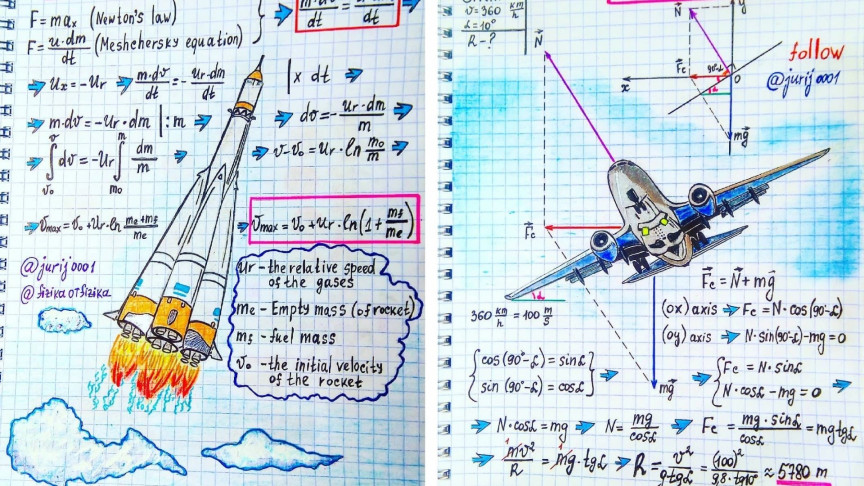 F = max (Newton's law)
F = u·dm/dt (Meshchersky equation)
m·dv/dt = ur·dm/dt
ux = -ur
m·dv/dt = - ur·dm/dt | x dt
m·dv = -ur·dm | :m
dv = - ur·dm/m
∫ v v₀ dv = -ur ∫ m m₀ dm/m
v-v₀ = ur·ln m₀/m
vmax = v₀ + ur·ln me+mf/me
vmax = v₀ + ur·ln(1 + mf/me)
@jurij0001
@fizikaotfizika
ur - the relative speed
of the gases
me - Empty mass (of rocket)
mf - fuel mass
v₀ - the initial velocity
of the rocket
v = 360 km/h
α = 10°
R - ?
N⃗
N⃗
y
Fc
90°-α
O
x
α
mg⃗
follow
@jurij0001
F⃗c
α
360 km/h = 100 m/s
mg⃗
F⃗c = N⃗ + mg⃗
(ox) axis Fc = N·cos(90°-α)
(oy) axis N·sin(90°-α)-mg = 0
{ cos(90°-α) = sinα
sin(90°-α) = cosα
{ Fc = N·sinα
N·cosα - mg = 0
N·cosα = mg
N = mg/cosα
Fc = mg·sinα/cosα = mg tgα
mv²/R = mg·tgα
R = v²/g tgα = (100)²/9.8·tg10° ≈ 5780 m